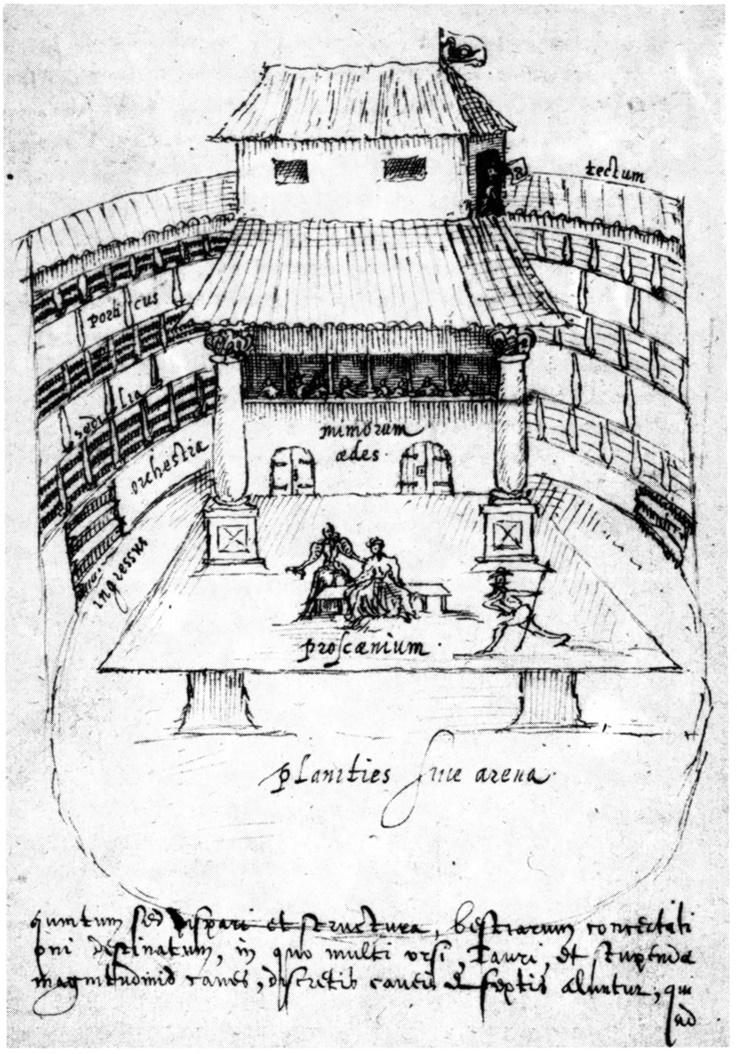 tectum
porticus
sedilia
orchestra
ingressus
mimorum
ædes.
proscænium.
planities siue arena.
quintum sed dispari et structura, bestiarum concertati
oni destinatum, in quo multi ursi, Tauri, et stupendæ
magnitudinis canes, discretis caueis et septis aluntur, qui
ad